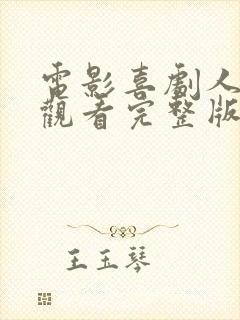 電影喜劇人
觀看完整版
王玉琴